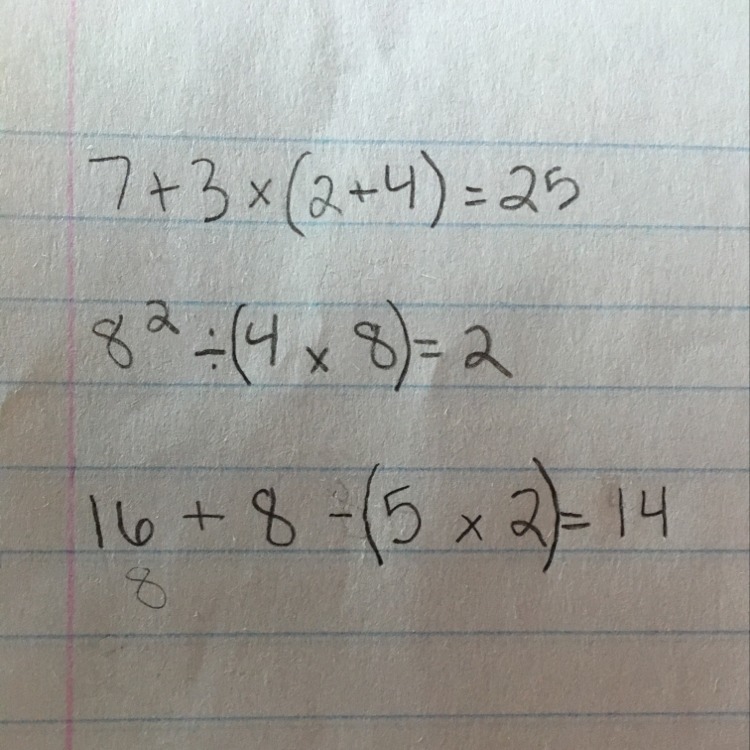 7 + 3 × (2 + 4) = 25
8² ÷ (4 × 8) = 2
16 + 8 - (5 × 2) = 14
8